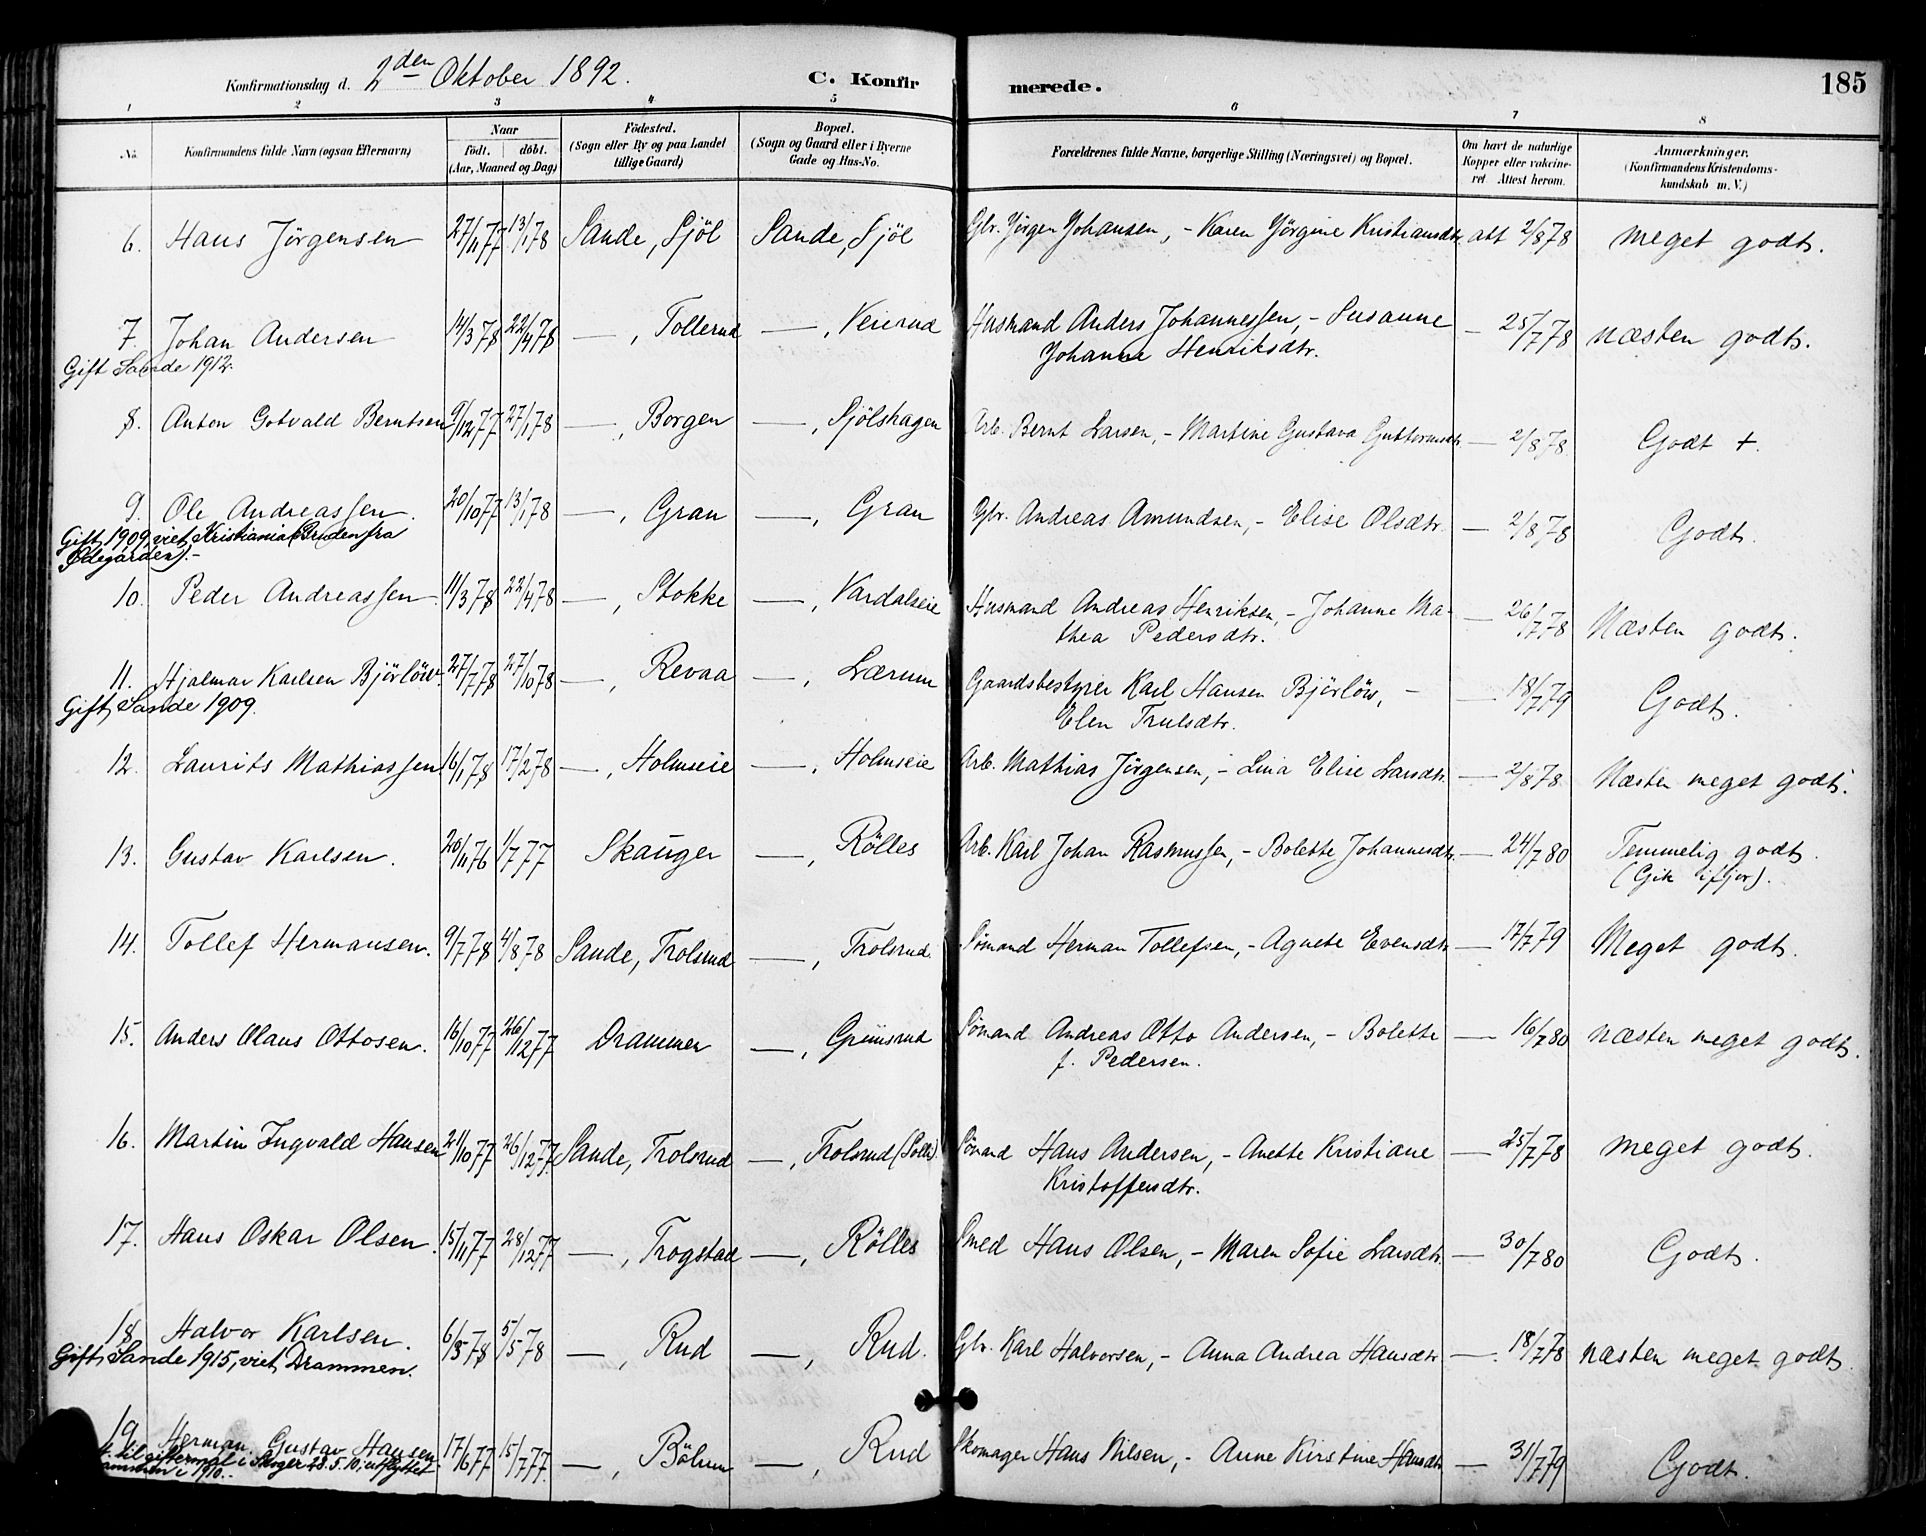 Konfirmationsdag d. 2den Oktober 1892. C. Konfirmerede. 185
1 2 3 4 5 6 7 8
No. Konfirmandens fulde Navn (ogsaa Efternavn) Naar født. døbt. (Aar, Maaned og Dag) Fødested. (Sogn eller By og paa Landet tillige Gaard) Bopæl. (Sogn og Gaard eller i Byerne Gade og Hus-No. Forældrenes fulde Navne, borgerlige Stilling (Næringsvei) og Bopæl. Om havt de naturlige Kopper eller vakcineret Attest herom. Anmærkninger. (Konfirmandens Kristendomskundskab m. V.)
6. Hans Jörgensen 27/11 77 13/1 78 Sande, Sjöl Sande, Sjöl Gbr. Jörgen Johansen, - Karen Jörgine Kristiansdtr. att 2/8 78 meget godt.
7. Johan Andersen 14/3 78 22/4 78 —, Tollerud —, Veierud Husmand Anders Johannessen, - Susanne — 25/7 78 næsten godt.
Johanne Henriksdtr.
Gift Sande 1912.
8. Anton Gotvald Berntsen 9/12 77 27/1 78 —, Borgen —, Sjölshagen Arb. Bernt Larsen, - Martine Gustava Guttormsdtr. — 2/8 78 Godt +.
9. Ole Andreassen. 20/10 77 13/1 78 —, Gran —, Gran Gbr. Andreas Amundsen, - Elise Olsdtr. — 2/8 78 Godt.
Gift 1909, viet Kristiania (Bruden fra
Ødegården).-
10. Peder Andreassen. 11/3 78 22/4 78 —, Stokke —, Vardalseie Husmand Andreas Henriksen, - Johanne Ma- — 26/7 78 Næsten godt.
thea Pedersdtr.
11. Hjalmar Karlsen Björlöw. 27/7 78 27/10 78 —, Revaa —, Lærum Gaardsbestyrer Karl Hansen Björlöw, - — 18/7 79 Godt.
Elen Trulsdtr.
Gift, Sande 1909.
12. Laurits Mathiassen. 16/1 78 17/2 78 —, Holmseie —, Holmseie Arb. Mathias Jörgensen, - Lina Elise Larsdtr. — 2/8 78 Næsten meget godt.
13. Gustav Karlsen. 26/11 76 1/7 77 Skauger —, Rölles Arb. Karl Johan Rasmussen, - Bolette Johannesdtr. — 24/7 80 Temmelig godt.
(Gik ifjor).
14. Tollef Hermansen. 9/7 78 4/8 78 Sande, Trolsrud —, Trolsrud. Sömand Herman Tollefsen, - Agnete Evensdtr. — 17/7 79 Meget godt.
15. Anders Olaus Ottosen. 16/10 77 26/12 77 Drammen —, Grimsrud Sömand Andreas Otto Andersen, - Bolette — 16/7 80 næsten meget godt.
f. Pedersen.
16. Martin Ingvald Hansen 21/10 77 26/12 77 Sande, Trolsrud —, Trolsrud Sömand Hans Andersen, - Anette Kristiane — 25/7 78 meget godt.
Kristoffersdtr.
17. Hans Oskar Olsen. 15/11 77 28/12 77 —, Trogstad —, Rölles Smed Hans Olsen, - Maren Sofie Larsdtr. — 30/7 80 Godt.
18. Halvor Karlsen. 6/3 78 5/5 78 —, Rud —, Rud. Gbr. Karl Halvorsen, - Anna Andrea Hansdtr. — 18/7 78 næsten meget godt.
Gift, Sande 1915, viet, Drammen.
19. Herman Gustav Hansen 17/6 77 15/7 77. —, Bölum —, Rud Skomager Hans Nilsen, - Anne Kirstine Hansdtr. — 31/7 79 Godt.
til giftermål i Skoger 28.5.10, utflyttet
i 1910.